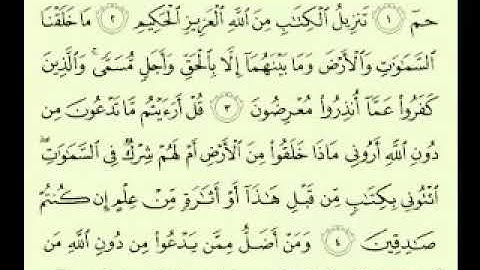 حمٓ ١ تَنزِيلُ ٱلْكِتَٰبِ مِنَ ٱللَّهِ ٱلْعَزِيزِ ٱلْحَكِيمِ ٢ مَا خَلَقْنَا
ٱلسَّمَٰوَٰتِ وَٱلْأَرْضَ وَمَا بَيْنَهُمَآ إِلَّا بِٱلْحَقِّ وَأَجَلٍ مُّسَمًّى ۚ وَٱلَّذِينَ
كَفَرُوا۟ عَمَّآ أُنذِرُوا۟ مُعْرِضُونَ ٣ قُلْ أَرَءَيْتُم مَّا تَدْعُونَ مِن
دُونِ ٱللَّهِ أَرُونِى مَاذَا خَلَقُوا۟ مِنَ ٱلْأَرْضِ أَمْ لَهُمْ شِرْكٌ فِى ٱلسَّمَٰوَٰتِ ۖ
ٱئْتُونِى بِكِتَٰبٍ مِّن قَبْلِ هَٰذَآ أَوْ أَثَٰرَةٍ مِّنْ عِلْمٍ إِن كُنتُمْ
صَٰدِقِينَ ٤ وَمَنْ أَضَلُّ مِمَّن يَدْعُوا۟ مِن دُونِ ٱللَّهِ مَن